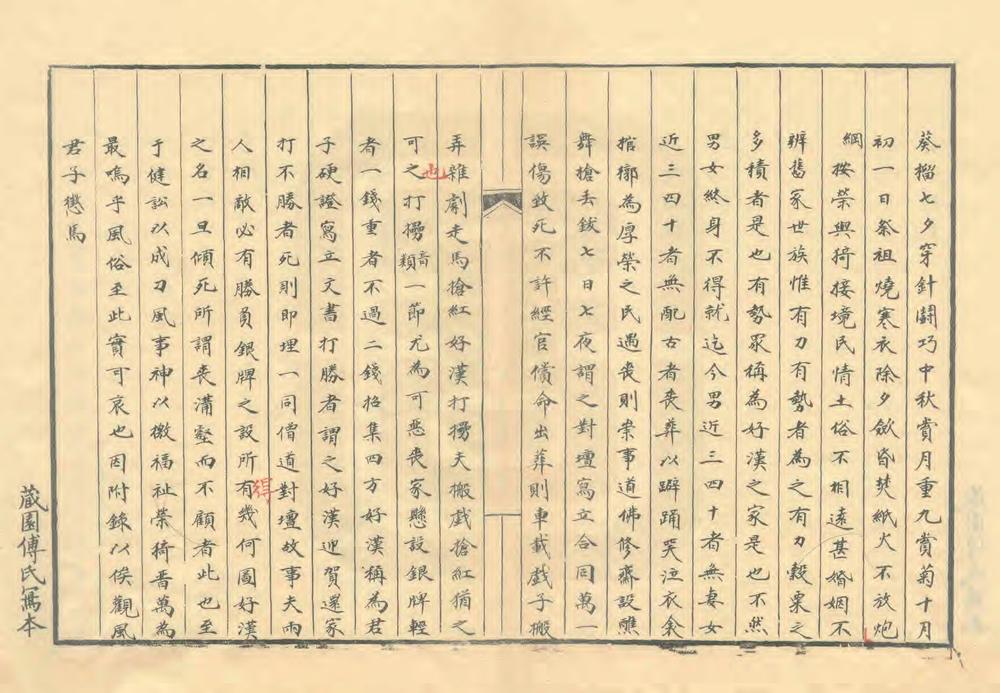 葵榴七夕穿針鬪巧中秋賞月重九賞菊十月
初一日祭祖燒寒衣除夕歛昏焚紙火不放炮
綱 按榮與猗接境民情土俗不相遠甚婚姻不
辨舊家世族惟有刀有勢者為之有刀穀粟之
多積者是也有勢眾稱為好漢之家是也不然
男女終身不得就迄今男近三四十者無妻女
近三四十者無配古者喪葬以擗踊哭泣衣衾
棺槨為厚榮之民遇喪則崇事道佛修齋設醮
舞搶丟鈸七日七夜謂之對壇寫立合同萬一
誤傷致死不許經官償命出葬則車載戲子搬
弄雜劇走馬搶紅好漢打撈夫搬戲搶紅猶之
可也之打撈音類一節尤為可惡喪家懸設銀牌輕
者一錢重者不過二錢招集四方好漢稱為君
子硬證寫立文書打勝者謂之好漢迎賀還家
打不勝者死則即埋一同僧道對壇故事夫兩
人相敵必有勝負銀牌之設所得有幾何圖好漢
之名一旦傾死所謂喪溝壑而不顧者此也至
于健訟以成刀風事神以徼福祉榮猗晋萬為
最嗚乎風俗至此實可哀也因附錄以俟觀風
君子懲焉
藏園傅氏寫本